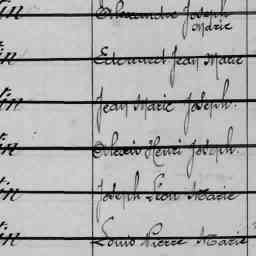 Alexandre Joseph
Marie
Edouard Jean Marie
Jean Marie Joseph.
Alexis Henri Joseph.
Joseph Léon Marie
Louis Pierre Marie